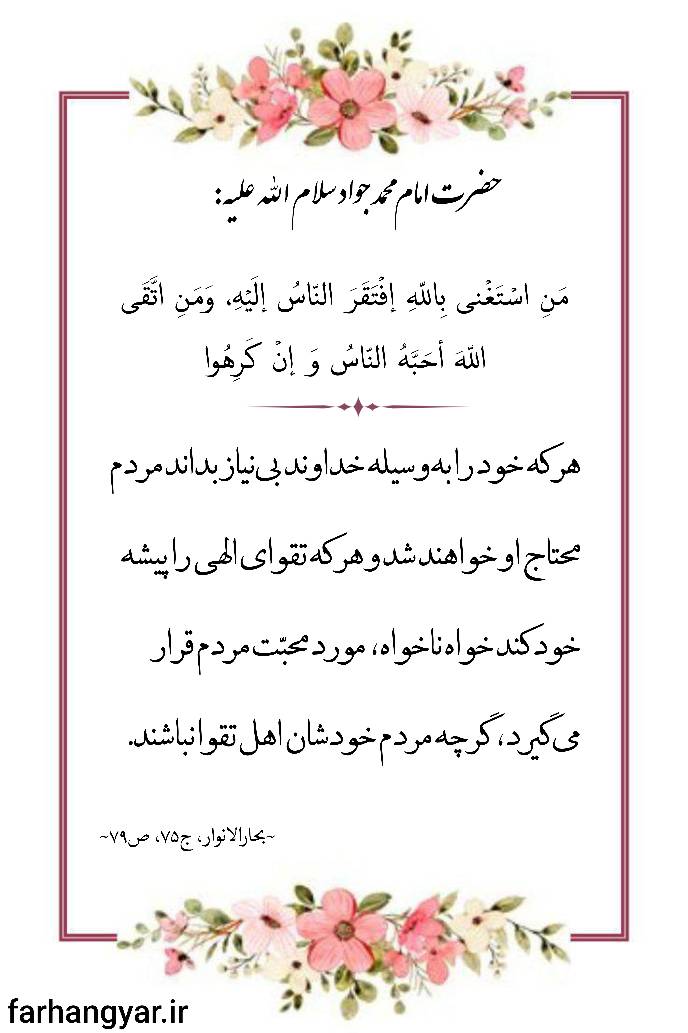 حضرت امام محمد جواد سلام الله علیه:
مَنِ اسْتَغْنی بِاللّهِ إفْتَقَرَ النّاسُ إلَیْهِ، وَمَنِ اتَّقَی
اللّهَ أحَبَّهُ النّاسُ وَ إنْ کَرِهُوا
هر که خود را به وسیله خداوند بی نیاز بداند مردم
محتاج او خواهند شد و هر که تقوای الهی را پیشه
خود کند خواه ناخواه، مورد محبّت مردم قرار
می گیرد، گرچه مردم خودشان اهل تقوا نباشند.
~بحارالانوار، ج۷۵، ص۷۹~
farhangyar.ir